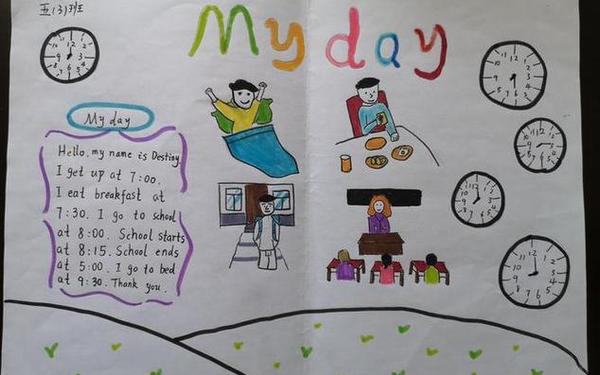 五(3)班
My day
My day
Hello, my name is Destiny.
I get up at 7:00.
I eat breakfast at
7:30. I go to school
at 8:00. School starts
at 8:15. School ends
at 5:00. I go to bed
at 9:30. Thank you.